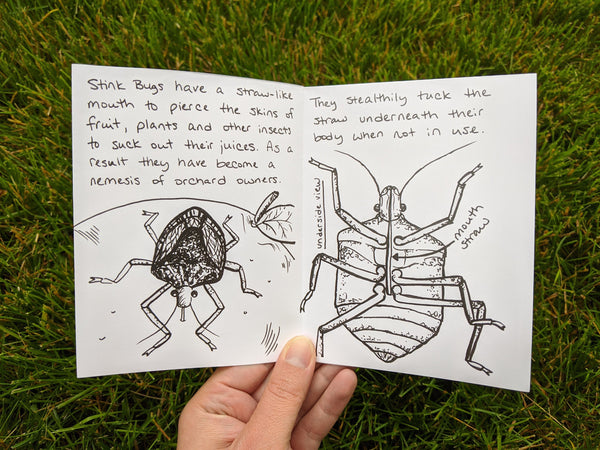 Stink Bugs have a straw-like
mouth to pierce the skins of
fruit, plants and other insects
to suck out their juices. As a
result they have become a
nemesis of orchard owners.
They stealthily tuck the
straw underneath their
body when not in use.
underside view
mouth
straw